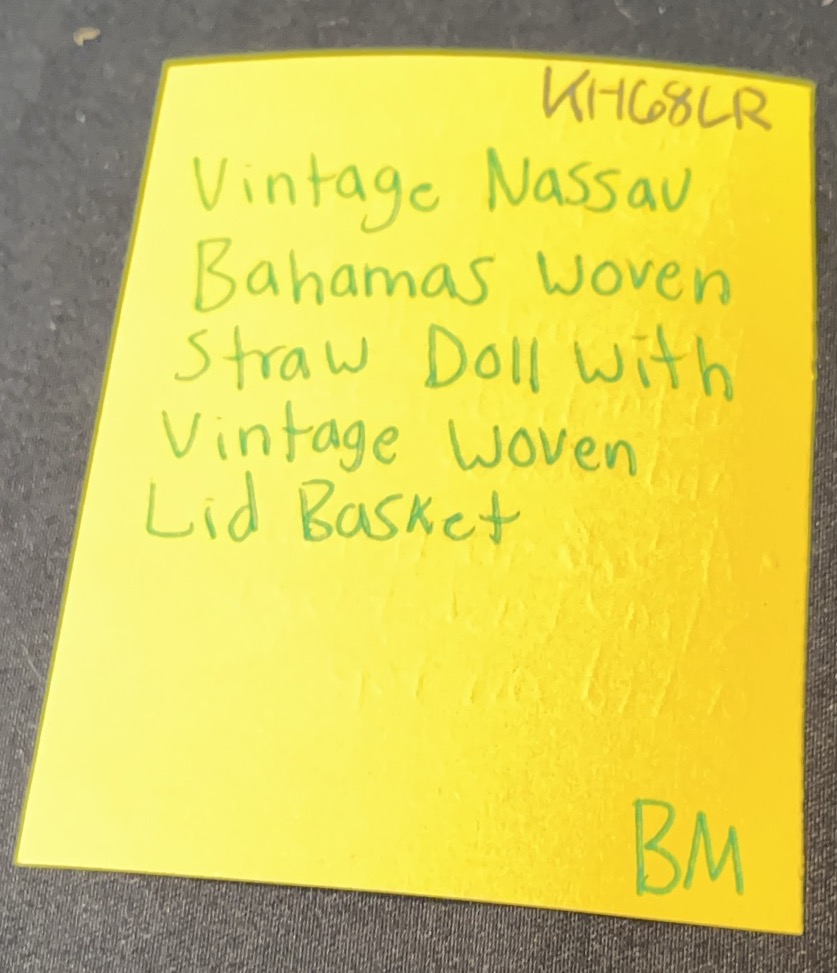 KH68LR
Vintage Nassau
Bahamas Woven
Straw Doll With
Vintage Woven
Lid Basket
BM